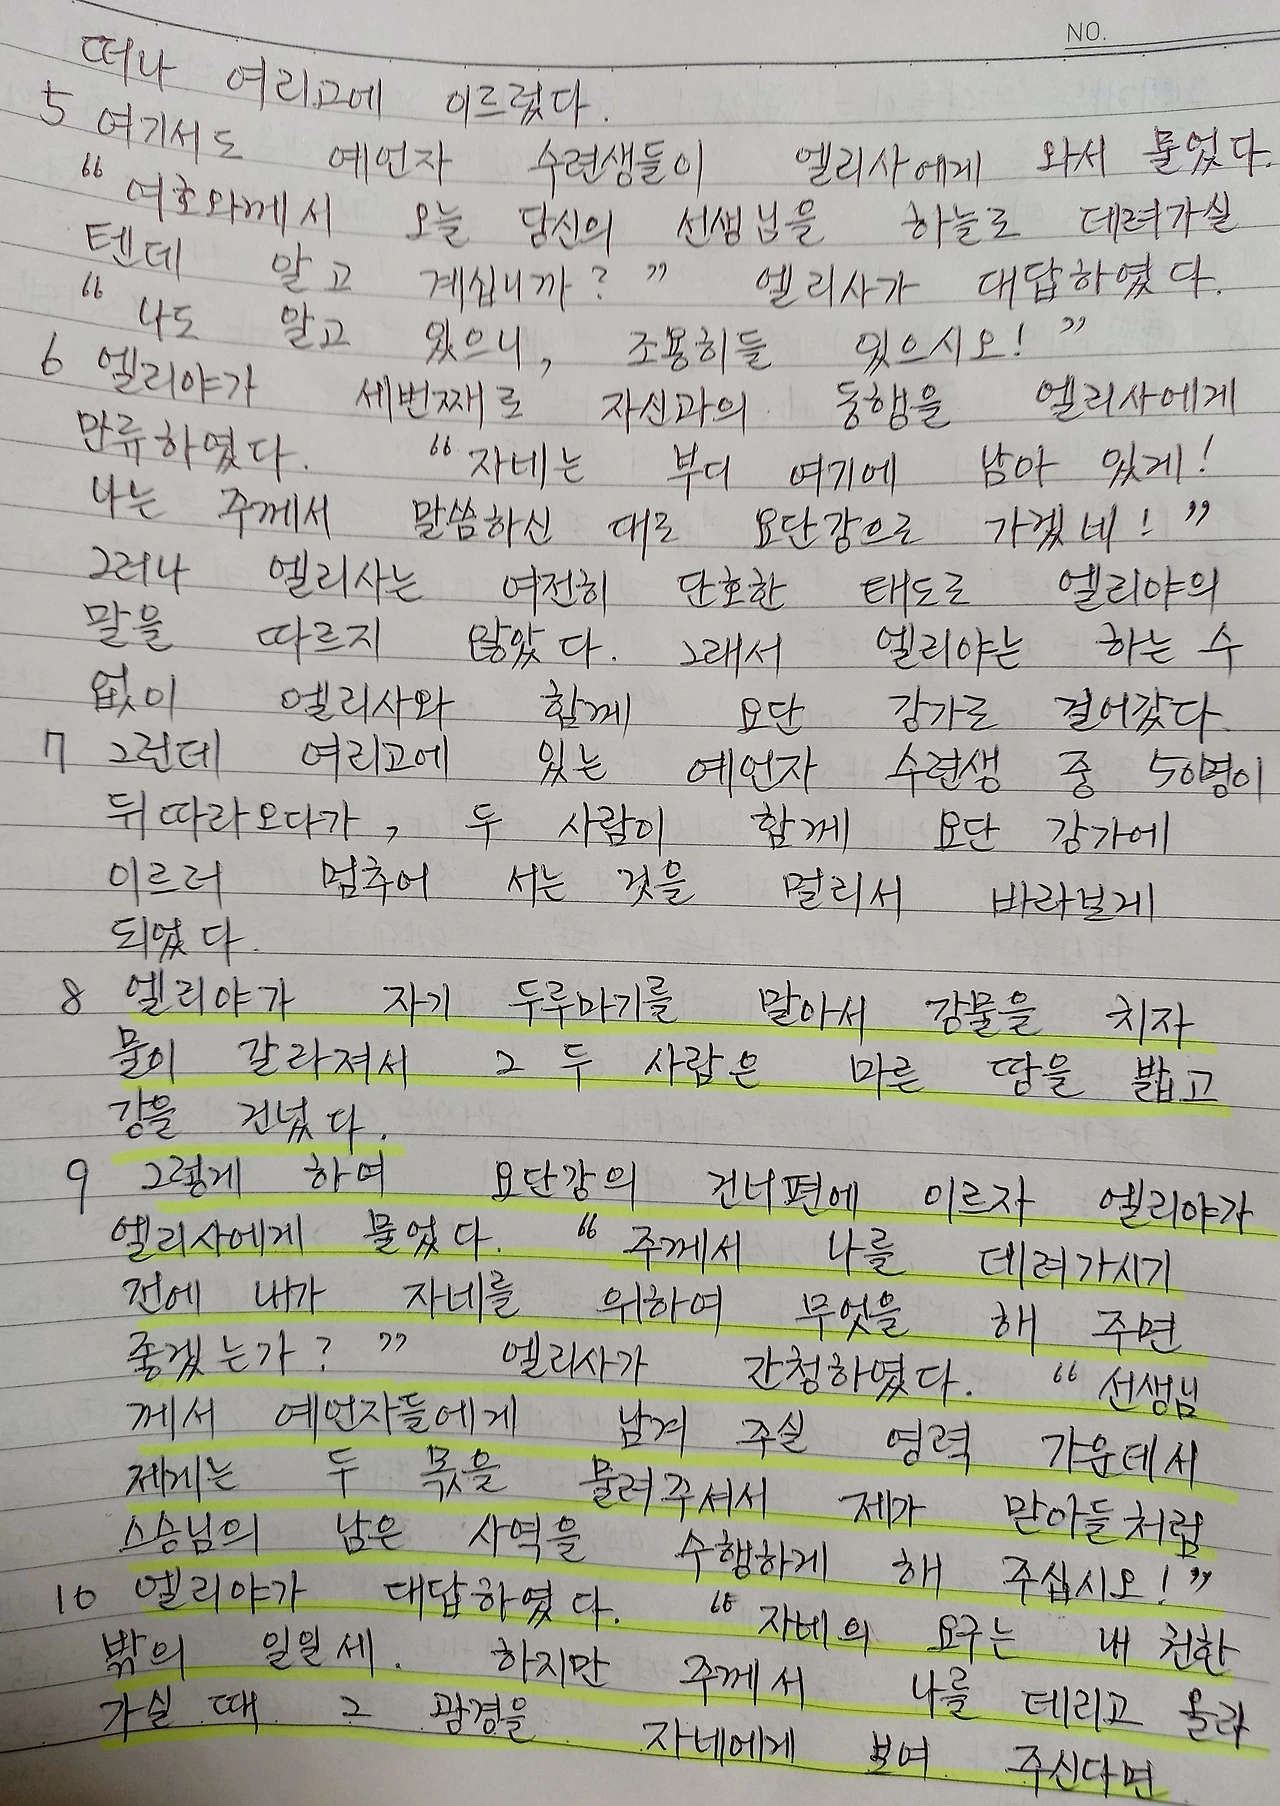 NO.
떠나 여리고에 이르렀다.
5 여기서도 예언자 수련생들이 엘리사에게 와서 물었다.
“여호와께서 오늘 당신의 선생님을 하늘로 데려가실
텐데 알고 계십니까?” 엘리사가 대답하였다.
“나도 알고 있으니, 조용히들 있으시오!”
6 엘리야가 세번째로 자신과의 동행을 엘리사에게
만류하였다. “자네는 부디 여기에 남아 있게!
나는 주께서 말씀하신 대로 요단강으로 가겠네!”
그러나 엘리사는 여전히 단호한 태도로 엘리야의
말을 따르지 않았다. 그래서 엘리야는 하는 수
없이 엘리사와 함께 요단 강가로 걸어갔다.
7 그런데 여리고에 있는 예언자 수련생 중 50명이
뒤따라오다가, 두 사람이 함께 요단 강가에
이르러 멈추어 서는 것을 멀리서 바라보게
되었다.
8 엘리야가 자기 두루마기를 말아서 강물을 치자
물이 갈라져서 그 두 사람은 마른 땅을 밟고
강을 건넜다.
9 그렇게 하여 요단강의 건너편에 이르자 엘리야가
엘리사에게 물었다. “주께서 나를 데려가시기
전에 내가 자네를 위하여 무엇을 해 주면
좋겠는가?” 엘리사가 간청하였다. “선생님
께서 예언자들에게 남겨 주실 영력 가운데서
제게는 두 몫을 물려주셔서 제가 맏아들처럼
스승님의 남은 사역을 수행하게 해 주십시오!”
10 엘리야가 대답하였다. “자네의 요구는 내 권한
밖의 일일세. 하지만 주께서 나를 데리고 올라
가실 때 그 광경을 자네에게 보여 주신다면